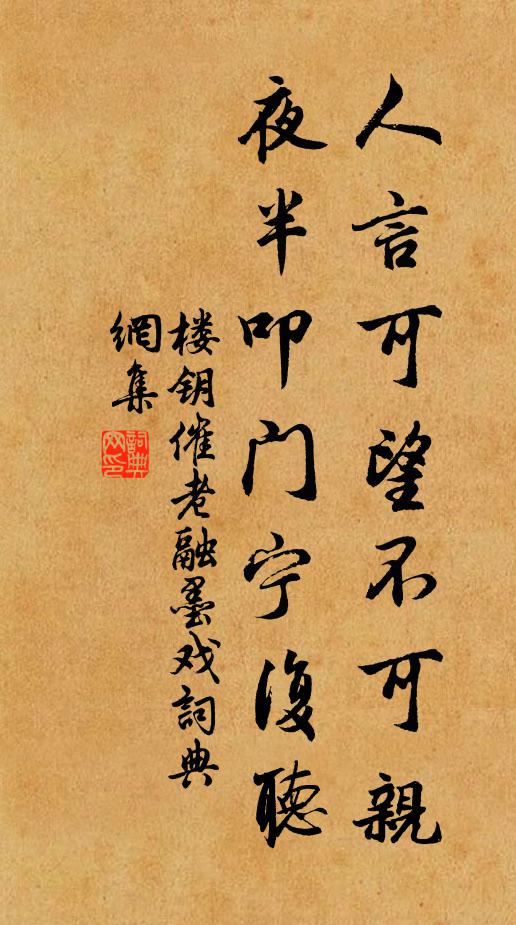 人言可望不可親
夜半叩门宁復聽
楼钥催老融墨戏詞典
網集
詞典
网印